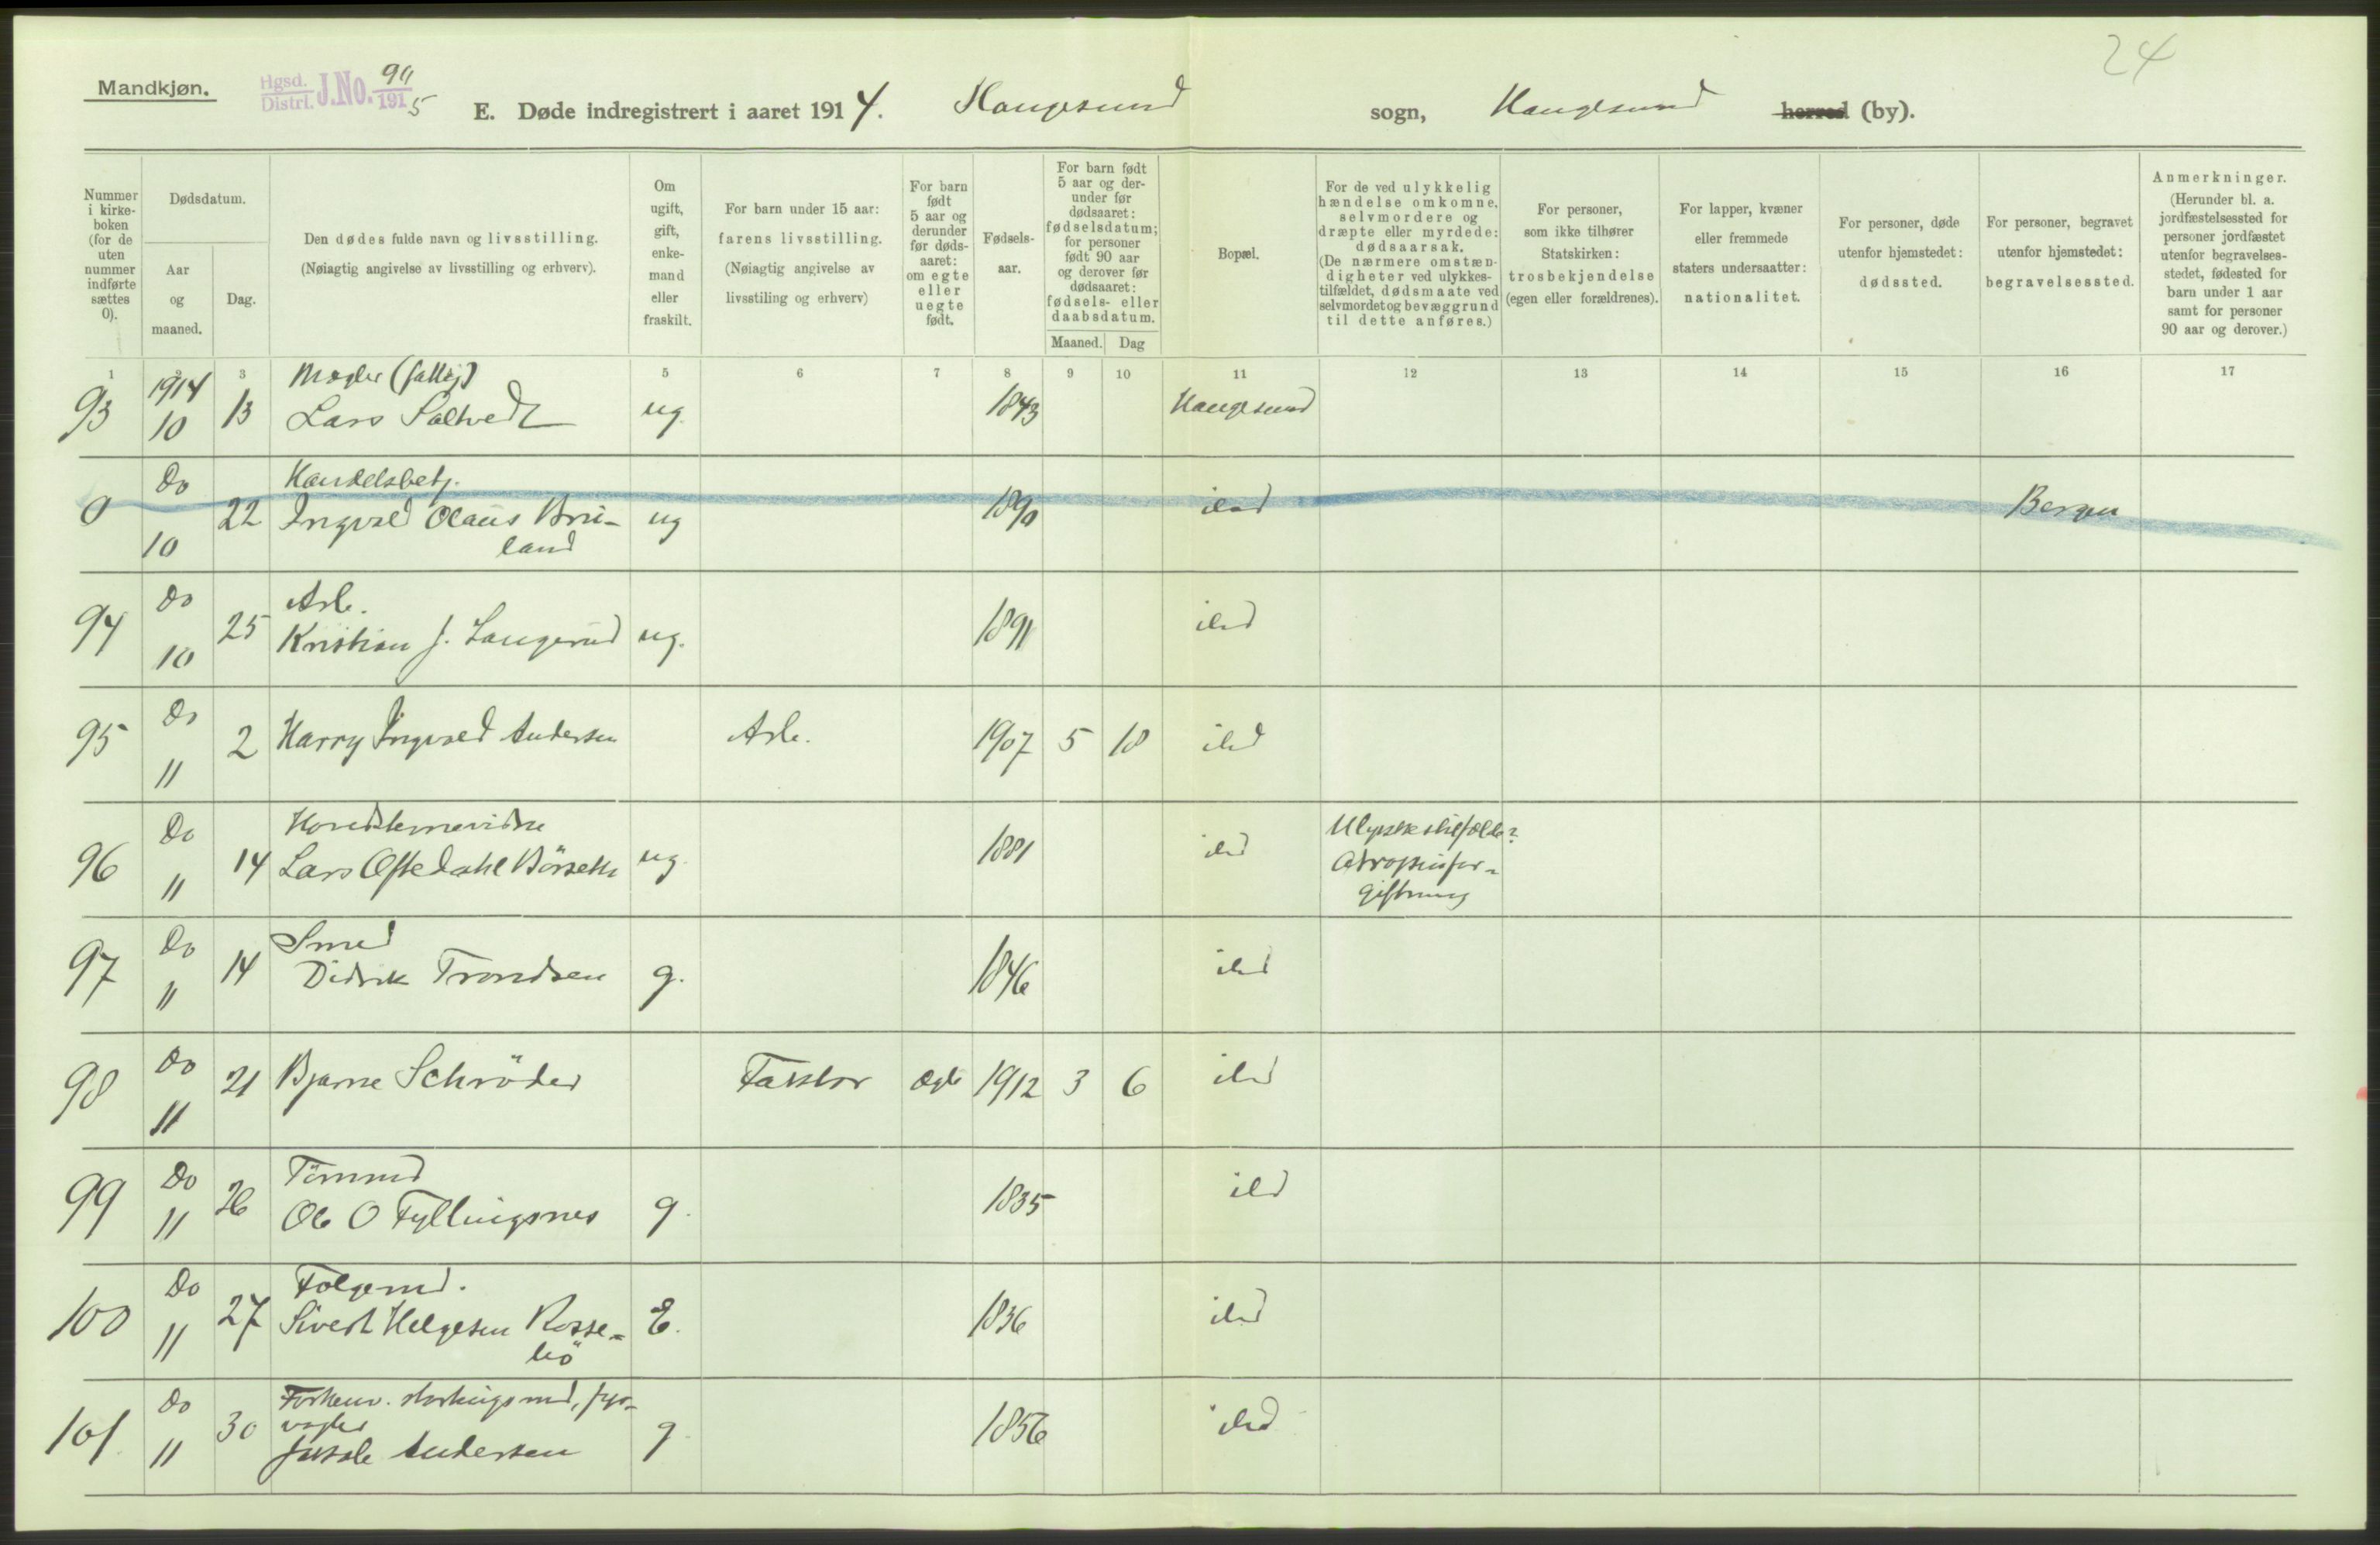 24
Mandkjøn.
Hgsd. Distrl. J.No. 90/1915
E. Døde indregistrert i aaret 1914. Haugesund sogn, Haugesund herred (by).
Nummer i kirke-boken (for de uten nummer indførte sættes 0).
Dødsdatum.
Aar og maaned.
Dag.
Den dødes fulde navn og livsstilling.
(Nøiagtig angivelse av livsstilling og erhverv).
Om ugift, gift, enke-mand eller fraskilt.
For barn under 15 aar: farens livsstilling.
(Nøiagtig angivelse av livsstiling og erhverv)
For barn født 5 aar og derunder før døds-aaret: om egte eller uegte født.
Fødsels-aar.
For barn født 5 aar og der-under før dødsaaret: fødselsdatum; for personer født 90 aar og derover før dødsaaret: fødsels- eller daabsdatum.
Maaned. Dag
Bopæl.
For de ved ulykkelig hændelse omkomne, selvmordere og dræpte eller myrdede: dødsaarsak.
(De nærmere omstæn-digheter ved ulykkes-tilfældet, dødsmaate ved selvmordet og bevæggrund til dette anføres.)
For personer, som ikke tilhører Statskirken: trosbekjendelse (egen eller forældrenes).
For lapper, kvæner eller fremmede staters undersaatter: nationalitet.
For personer, døde utenfor hjemstedet: dødssted.
For personer, begravet utenfor hjemstedet: begravelsessted.
Anmerkninger.
(Herunder bl. a. jordfæstelsessted for personer jordfæstet utenfor begravelses-stedet, fødested for barn under 1 aar samt for personer 90 aar og derover.)
1 2 3 5 6 7 8 9 10 11 12 13 14 15 16 17
93 1914 10 13 Mægler
Lars Saltvedt ug. 1843 Haugesund
0 Do 10 22 Handelsbetj.
Ingvald Olaus Bru-
land ug 1890 ibd Bergen
94 Do 10 25 Arb.
Kristian J. Langerud ug. 1891 ibd
95 Do 11 2 Harry Ingvald Andersen Arb. 1907 5 18 ibd
96 Do 11 14
Lars Oftedahl ug. 1881 ibd Ulykkestilfælde?
Atropinfor-
giftning
97 Do 11 14 Smed
Didrik Trondsen g. 1846 ibd
98 Do 11 21 Bjarne Schröder Faktor Ægte 1912 3 6 ibd
99 Do 11 26 Tömmd
Ole O Fyllingsnes g. 1835 ibd
100 Do 11 27 Folgemd.
Sivert Helgesen Rosse-
bö E. 1836 ibd
101 Do 11 30 Forhenv. stortingsmd, fyr-
vogter
Andersen g. 1856 ibd